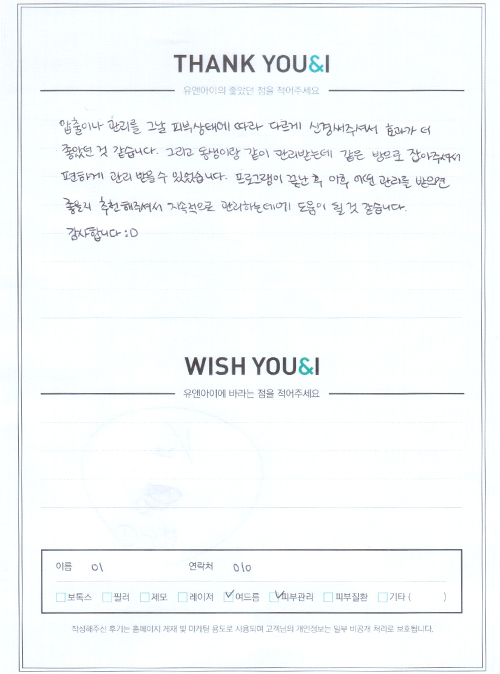 THANK YOU&I
유앤아이의 좋았던 점을 적어주세요
압출이나 관리를 그날 피부상태에 따라 다르게 신경써주셔서 효과가 더
좋았던 것 같습니다. 그리고 동생이랑 같이 관리받는데 같은 방으로 잡아주셔서
편하게 관리 받을 수 있었습니다. 프로그램이 끝난 후 이후 어떤 관리를 받으면
좋을지 추천해주셔서 지속적으로 관리하는데에 도움이 될 것 같습니다.
감사합니다 :D
WISH YOU&I
유앤아이에 바라는 점을 적어주세요
이름 이 연락처 010
보톡스 필러 제모 레이저 여드름 피부관리 피부질환 기타 ( )
작성해주신 후기는 홈페이지 게재 및 마케팅 용도로 사용되며 고객님의 개인정보는 일부 비공개 처리로 보호됩니다.